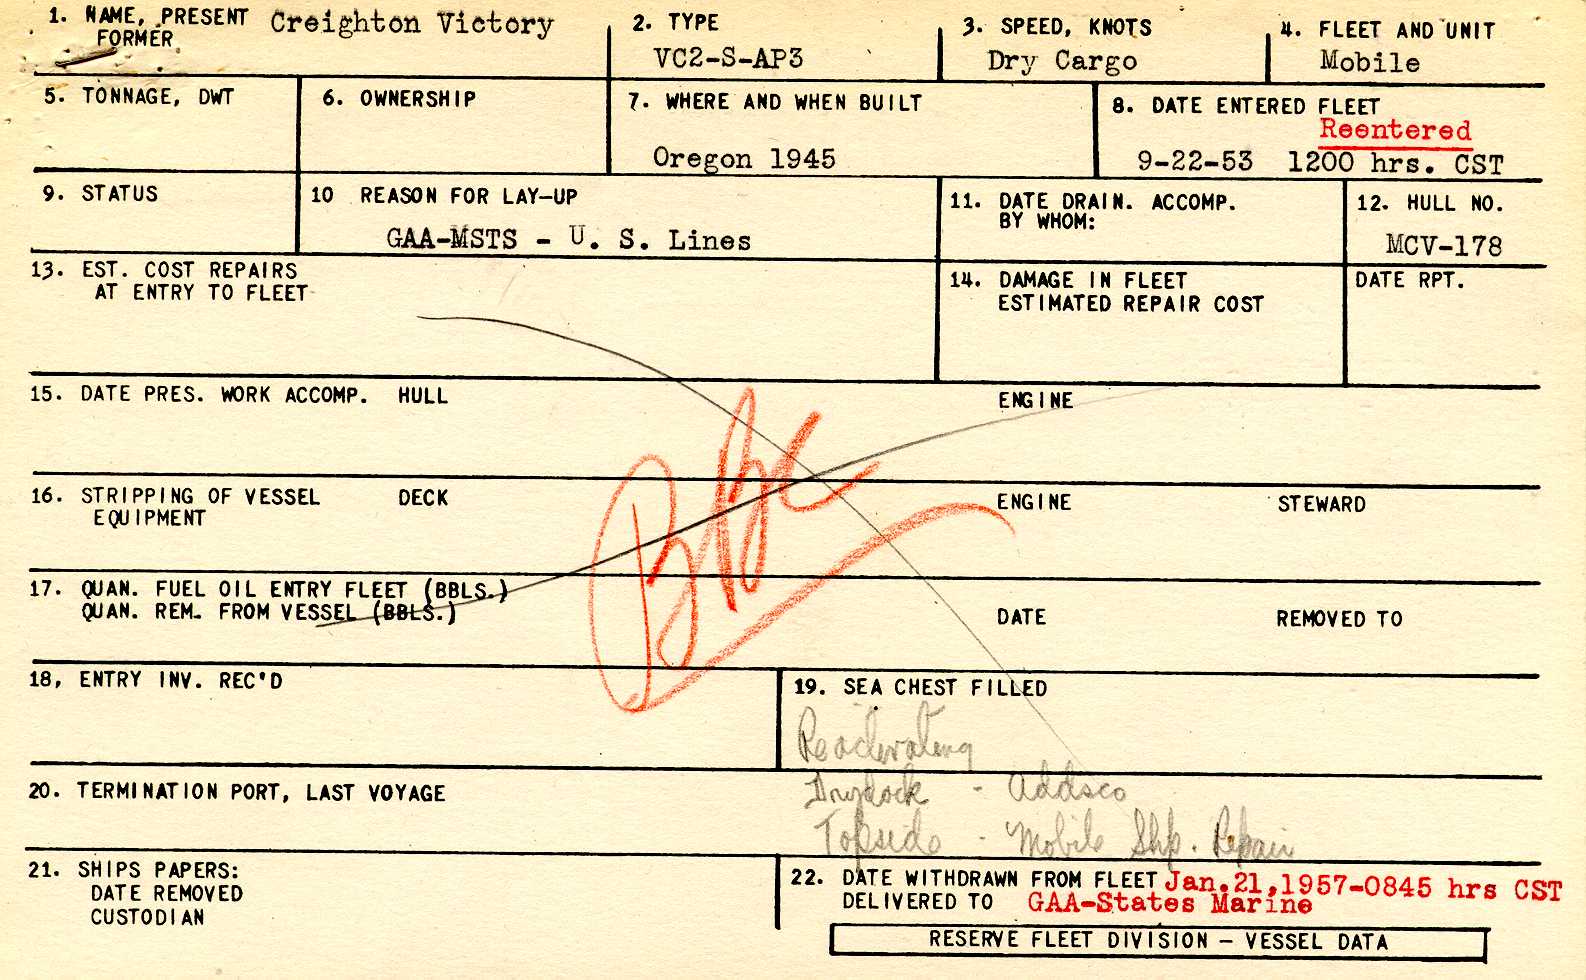 1. NAME, PRESENT Creighton Victory
FORMER
2. TYPE
VC2-S-AP3
3. SPEED, KNOTS
Dry Cargo
4. FLEET AND UNIT
Mobile
5. TONNAGE, DWT
6. OWNERSHIP
7. WHERE AND WHEN BUILT
Oregon 1945
8. DATE ENTERED FLEET
Reentered
9-22-53 1200 hrs. CST
9. STATUS
10 REASON FOR LAY-UP
GAA-MSTS - U. S. Lines
11. DATE DRAIN. ACCOMP.
BY WHOM:
12. HULL NO.
MCV-178
13. EST. COST REPAIRS
AT ENTRY TO FLEET
14. DAMAGE IN FLEET
ESTIMATED REPAIR COST
DATE RPT.
15. DATE PRES. WORK ACCOMP. HULL ENGINE
16. STRIPPING OF VESSEL DECK ENGINE STEWARD
EQUIPMENT
17. QUAN. FUEL OIL ENTRY FLEET (BBLS.)
QUAN. REM. FROM VESSEL (BBLS.) DATE REMOVED TO
18, ENTRY INV. REC'D
19. SEA CHEST FILLED
Reactivating
Drydock - Addsco
Topside - Mobile Shp. Repair
20. TERMINATION PORT, LAST VOYAGE
21. SHIPS PAPERS:
DATE REMOVED
CUSTODIAN
22. DATE WITHDRAWN FROM FLEET Jan.21,1957-0845 hrs CST
DELIVERED TO GAA-States Marine
RESERVE FLEET DIVISION - VESSEL DATA